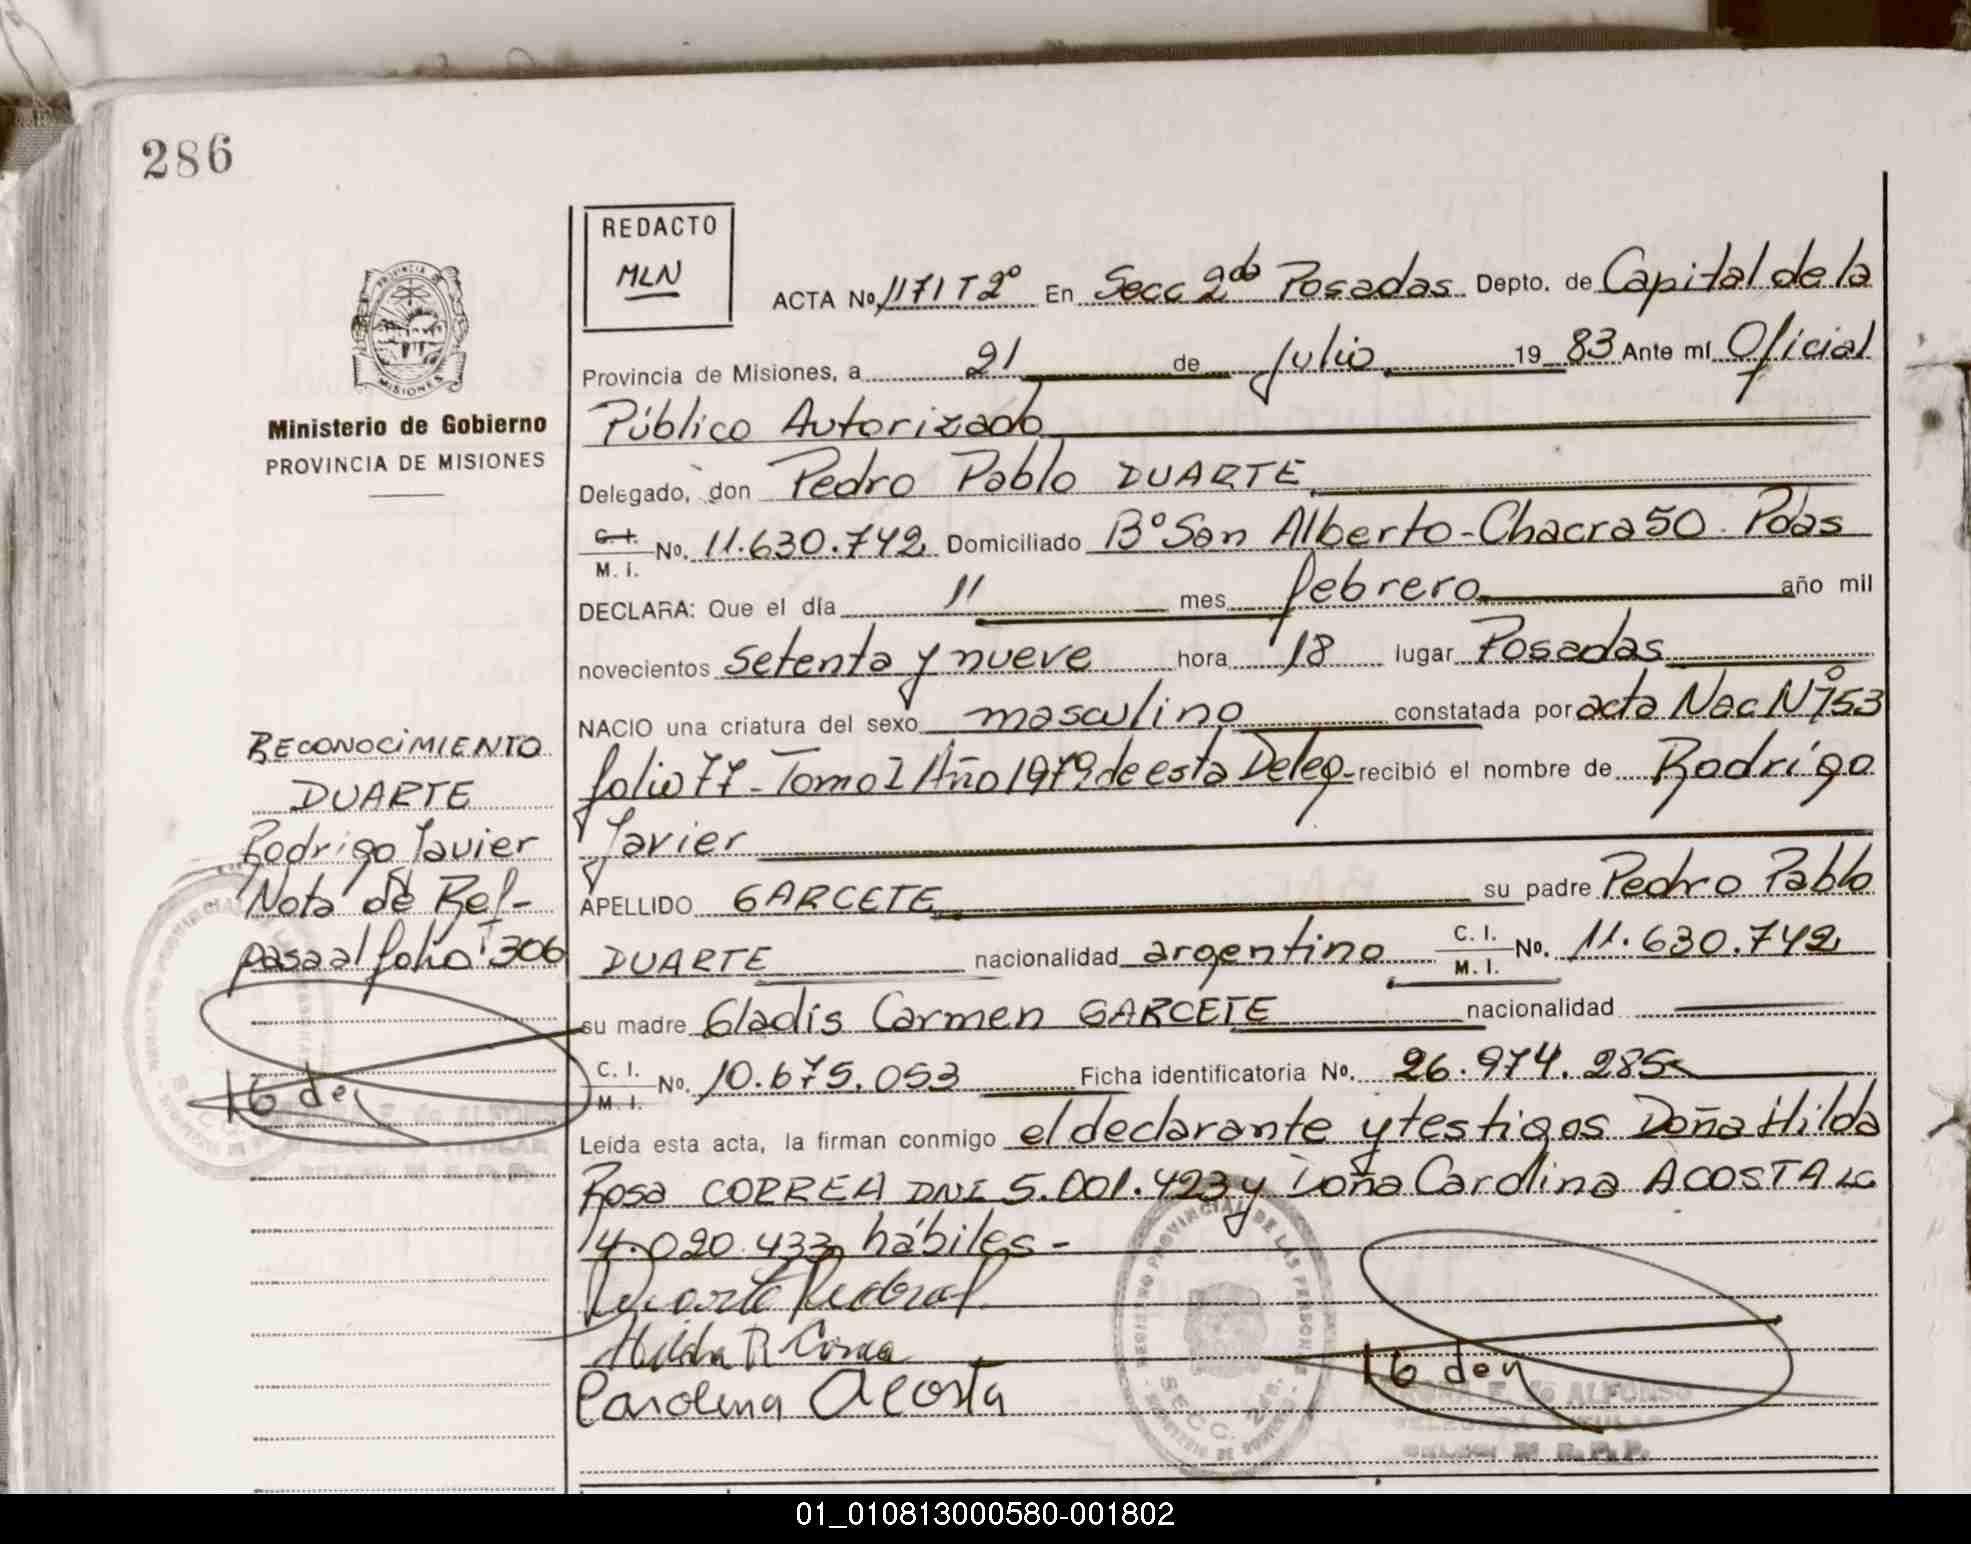 286
REDACTO
MLN
ACTA No. 1171 T 2º En Secc 2da Posadas Depto. de Capital de la
Provincia de Misiones, a 21 de Julio 19 83 Ante mí Oficial
Público Autorizado
Delegado, don Pedro Pablo DUARTE
C. I. M. I. No. 11.630.742 Domiciliado Bº San Alberto - Chacra 50. Pdas
DECLARA: Que el día 11 mes febrero año mil
novecientos setenta y nueve hora 18 lugar Posadas
NACIO una criatura del sexo masculino constatada por acta Nac Nº 153
folio 77 - Tomo I Año 1979 de esta Deleg. recibió el nombre de Rodrigo
Javier
APELLIDO GARCETE su padre Pedro Pablo
DUARTE nacionalidad argentino C. I. M. I. No. 11.630.742
su madre Gladis Carmen GARCETE nacionalidad
C. I. M. I. No. 10.675.053 Ficha identificatoria No. 26.974.285
Leída esta acta, la firman conmigo el declarante y testigos Doña Hilda
Rosa CORREA DNI 5.001.423 y Doña Carolina ACOSTA LC
4.020.433 hábiles -
Hilda R Correa
Carolina Acosta
PROVINCIA DE
MISIONES
Ministerio de Gobierno
PROVINCIA DE MISIONES
RECONOCIMIENTO
DUARTE
Rodrigo Javier
Nota de Ref-
pasa al folio 306
REGISTRO PROVINCIAL DE LAS PERSONAS
SECC. 2da.
MINISTERIO DE GOBIERNO
E. de ALFONSO
DELEGADA TITULAR
R.P.P.
01_010813000580-001802